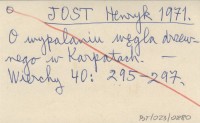 JOST Henryk 1971.
O wypalaniu węgla drzew-
nego w Karpatach. —
Wierchy 40: 295-297.